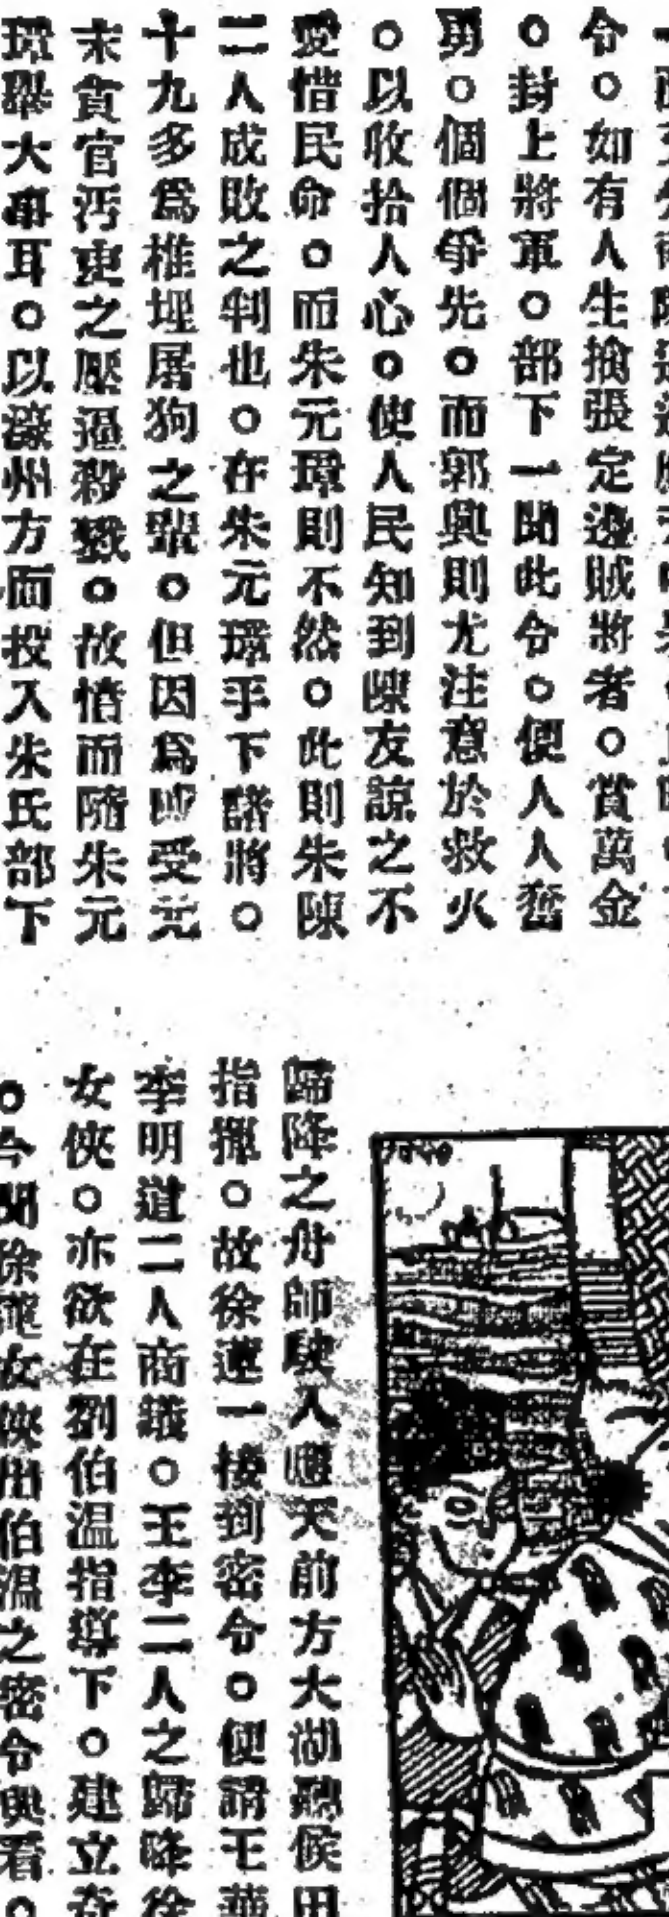 令。如有人生擒張定邊賊將者。賞萬金
。封上將軍。部下一聞此令。便人人奮
勇。個個爭先。而郭興則尤注意於救火
。以收拾人心。使人民知到陳友諒之不
愛惜民命。而朱元璋則不然。此則朱陳
二人成敗之判也。在朱元璋手下諸將。
十九多爲椎埋屠狗之輩。但因爲受元
末貪官汚吏之壓逼殺戮。故憤而隨朱元
璋舉大事耳。以濠州方面投入朱氏部下
歸降之舟師駛入應天前方大湖聽候田
指揮。故徐達一接到密令。便請王
李明道二人商議。王李二人之歸降徐
女俠。亦欲在劉伯温指導下。建立奇
。今聞徐女俠出伯温之密令與看。